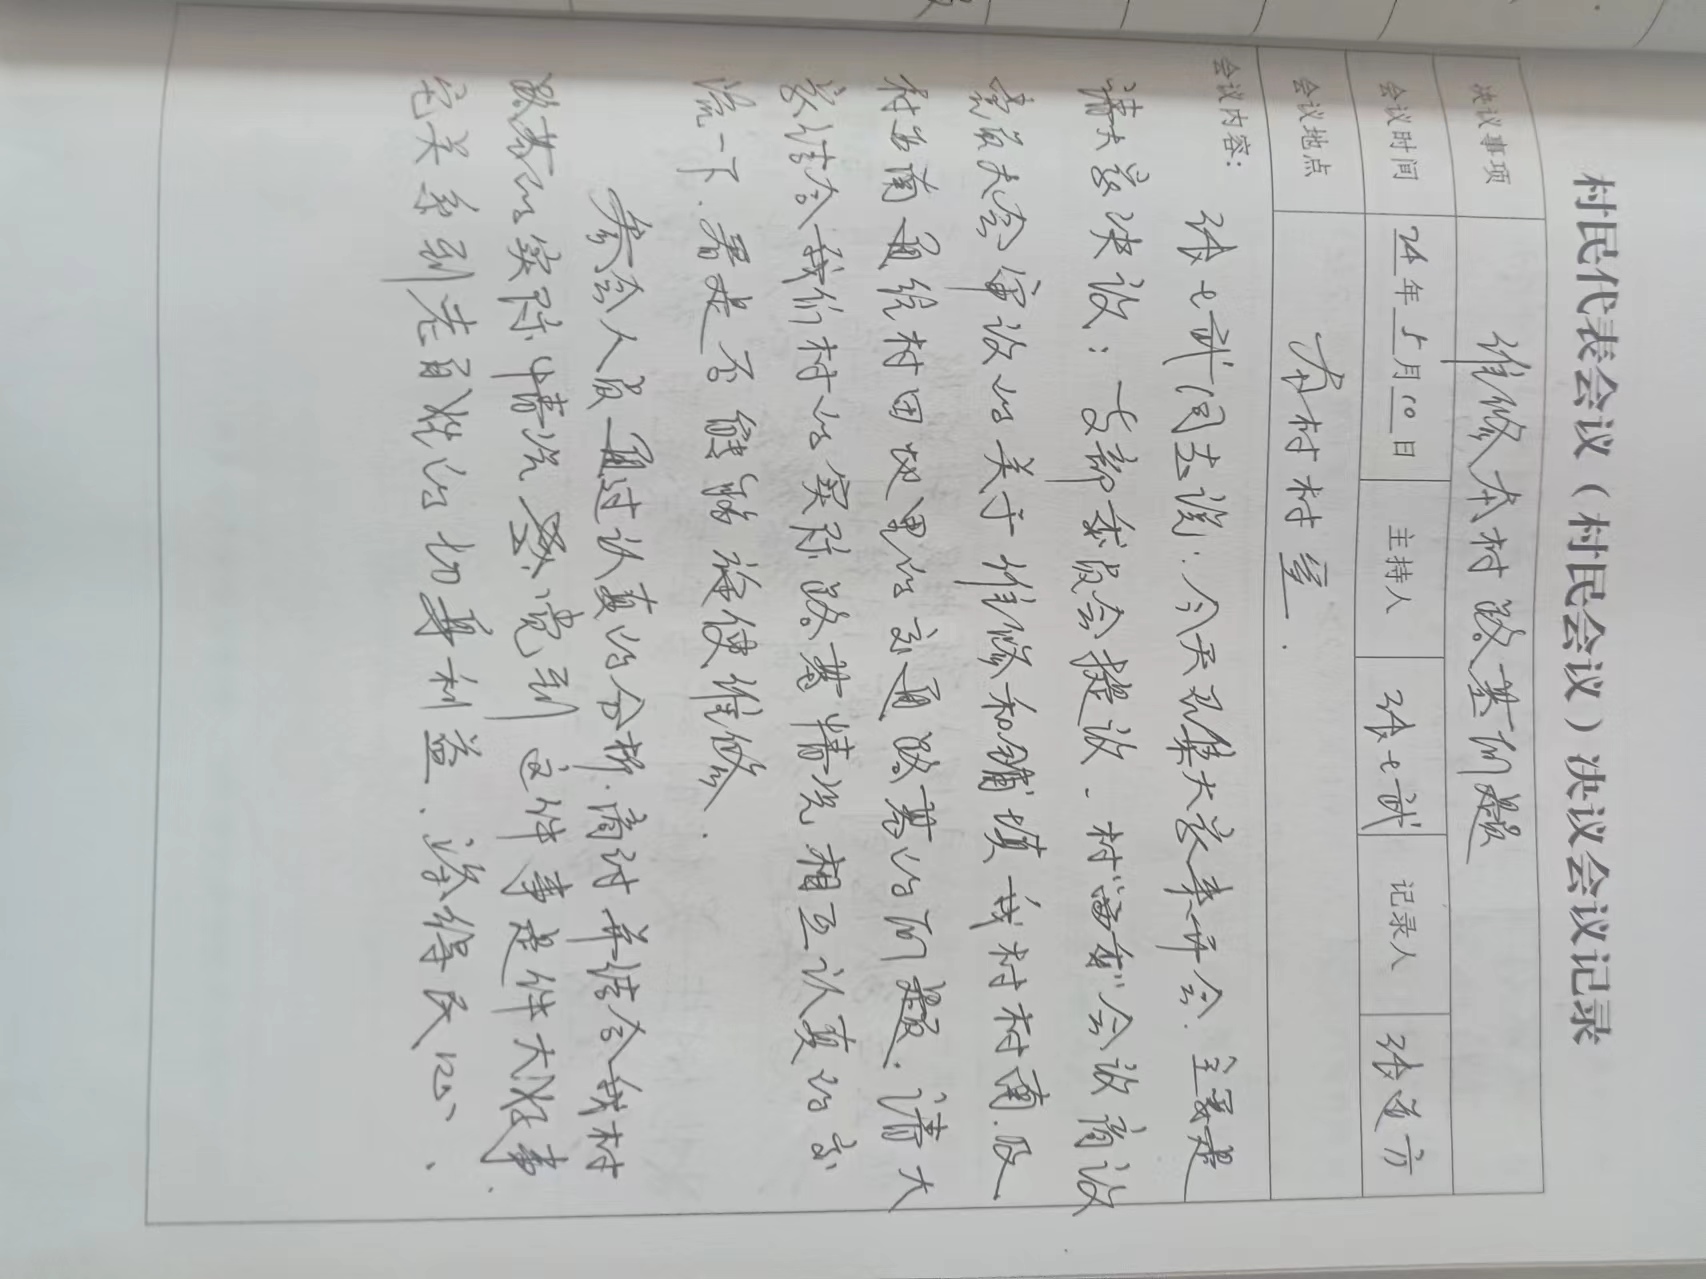 村民代表会议（村民会议）决议会议记录
决议事项 维修本村路基问题
会议时间 24年5月10日 主持人 张七武 记录人 张道方
会议地点 本村村室.
会议内容:
张七武同志说: 今天召集大家来开会. 主要是
请大家决议: 支部委员会提议、村“两委”会议商议
党员大会审议的关于维修和铺填我村村南.及
村西南通给村田地里的交通路基的问题. 请大
家结合我们村的实际路基情况相互认真的交
流一下. 看是否能够 使维修.
参会人员通过认真的分析.商讨并结合我村
路基的实际情况 觉到这件事是件大好事.
它关系到老百姓的切身利益. 深得民心、